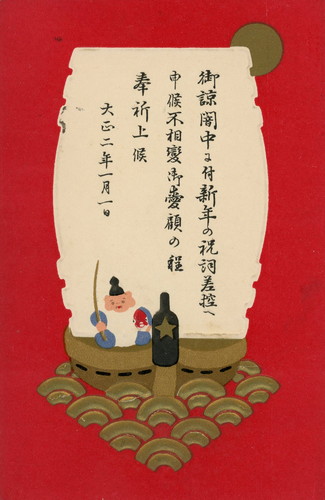 御諒闇中に付新年の祝詞差控へ
申候不相變御愛顧の程
奉祈上候
大正二年一月一日